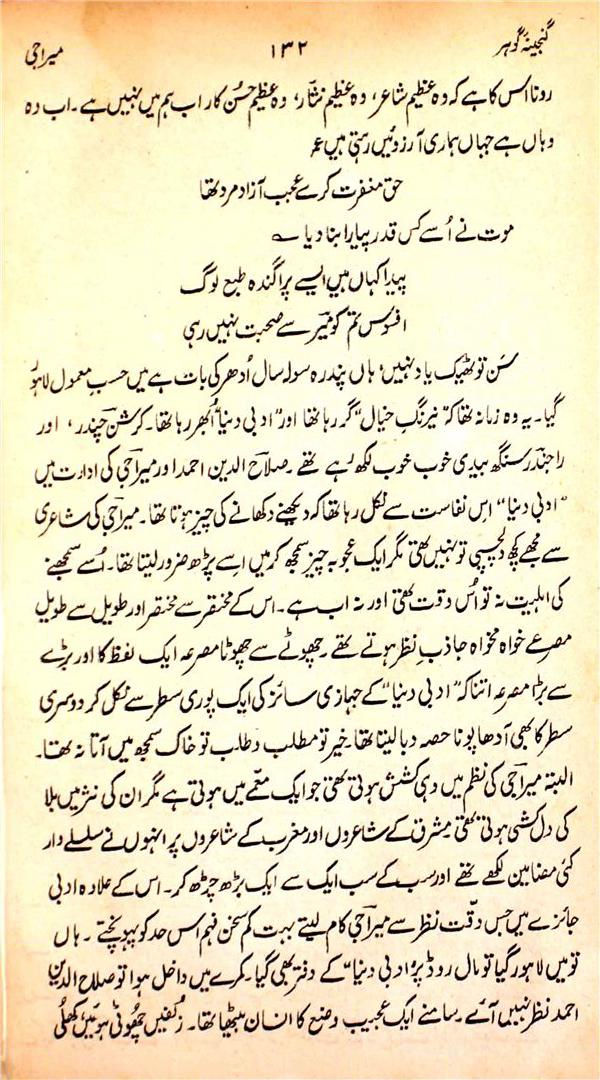 گنجینۂ گوہر ۱۳۲ میراجی
رونا اس کا ہے کہ وہ عظیم شاعر، وہ عظیم نثار، وہ عظیم حسن کار اب ہم میں نہیں ہے۔ اب وہ
وہاں ہے جہاں ہماری آرزوئیں رہتی ہیں ؏
حق مغفرت کرے عجب آزاد مرد تھا
موت نے اُسے کس قدر پیارا بنا دیا ؎
پیدا کہاں ہیں ایسے پراگندہ طبع لوگ
افسوس تم کو میرؔ سے صحبت نہیں رہی
سَن تو ٹھیک یاد نہیں، ہاں پندرہ سولہ سال اُدھر کی بات ہے میں حسبِ معمول لاہور
گیا۔ یہ وہ زمانہ تھا کہ "نیرنگِ خیال" گر رہا تھا اور "ادبی دنیا" اُبھر رہا تھا۔ کرشن چندر، اور
راجندر سنگھ بیدی خوب خوب لکھ رہے تھے۔ صلاح الدین احمد اور میراجی کی ادارت میں
"ادبی دنیا" اس نفاست سے نکل رہا تھا کہ دیکھنے دکھانے کی چیز ہوتا تھا۔ میراجی کی شاعری
سے مجھے کچھ دلچسپی تو نہیں تھی مگر ایک عجوبہ چیز سمجھ کر میں اسے پڑھ ضرور لیتا تھا۔ اُسے سمجھنے
کی اہلیت نہ تو اُس وقت تھی اور نہ اب ہے۔ اس کے مختصر سے مختصر اور طویل سے طویل
مصرعے خواہ مخواہ جاذبِ نظر ہوتے تھے۔ چھوٹے سے چھوٹا مصرعہ ایک لفظ کا اور بڑے
سے بڑا مصرعہ اتنا کہ "ادبی دنیا" کے جہازی سائز کی ایک پوری سطر سے نکل کر دوسری
سطر کا بھی آدھا پونا حصہ دبا لیتا تھا۔ خیر تو مطلب وطلب تو خاک سمجھ میں آتا نہ تھا۔
البتہ میراجی کی نظم میں وہی کشش ہوتی تھی جو ایک معّمے میں ہوتی ہے مگر ان کی نثر میں بلا
کی دل کشی ہوتی تھی۔ مشرق کے شاعروں اور مغرب کے شاعروں پر انہوں نے سلسلے وار
کئی مضامین لکھے تھے اور سب کے سب ایک سے ایک بڑھ چڑھ کر۔ اس کے علاوہ ادبی
جائزے میں جس دقّت نظر سے میراجی کام لیتے بہت کم سخن فہم اس حد کو پہونچتے۔ ہاں
تو میں لاہور گیا تو مال روڈ پر "ادبی دنیا" کے دفتر بھی گیا۔ کمرے میں داخل ہوا تو صلاح الدین
احمد نظر نہیں آئے۔ سامنے ایک عجیب وضع کا انسان بیٹھا تھا۔ زُلفیں چھوٹی ہوئیں کھلی